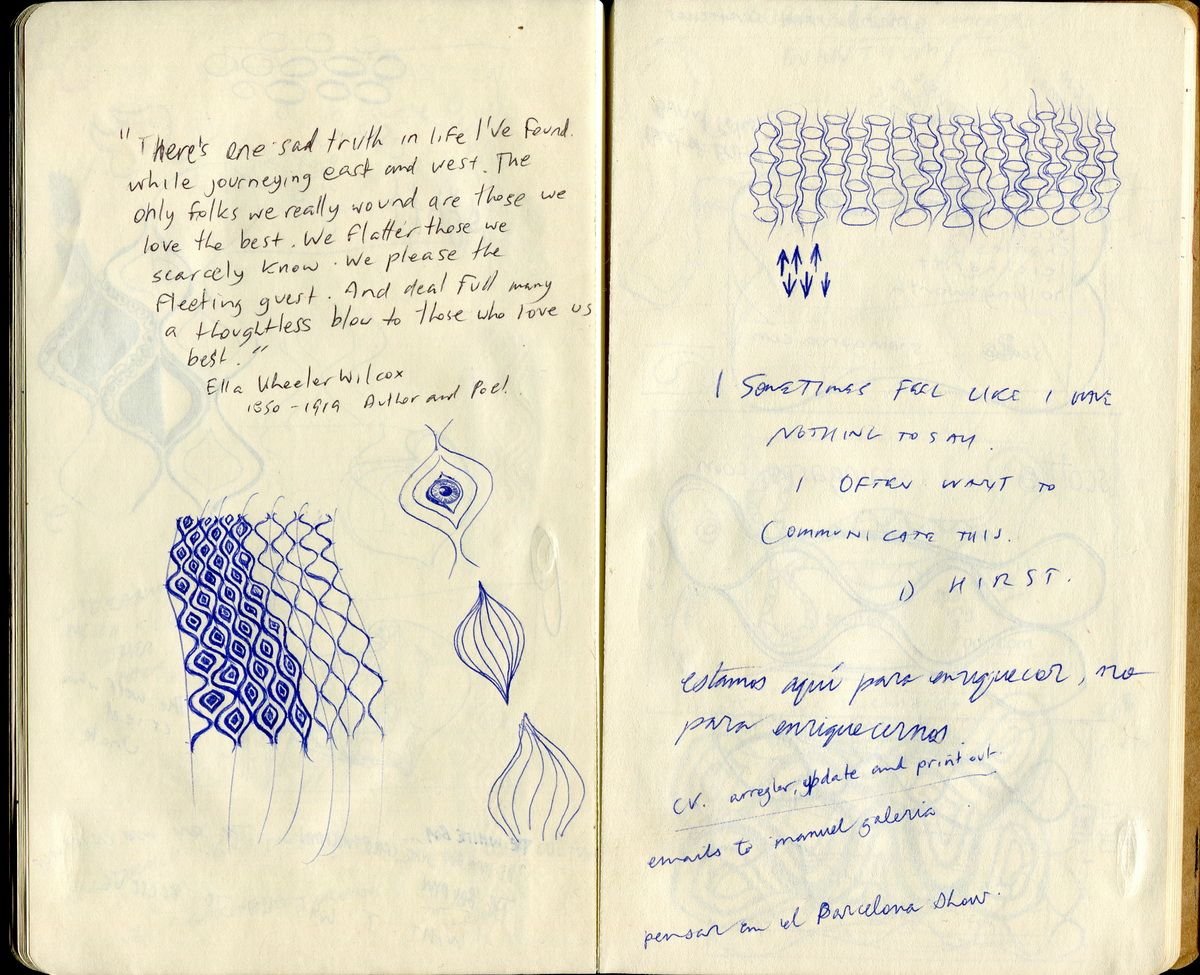 "There's one sad truth in life I've found.
while journeying east and west. The
only folks we really wound are those we
love the best. We flatter those we
scarcely know. We please the
fleeting guest. And deal full many
a thoughtless blow to those who love us
best."
Ella Wheeler Wilcox
1850 - 1919 Author and Poet.
I SOMETIMES FEEL LIKE I HAVE
NOTHING TO SAY.
I OFTEN WANT TO
COMMUNICATE THIS.
D HIRST.
estamos aquí para enriquecer, no
para enriquecernos.
CV. arreglar, update and print out.
emails to manuel galeria
pensar en el Barcelona Show.